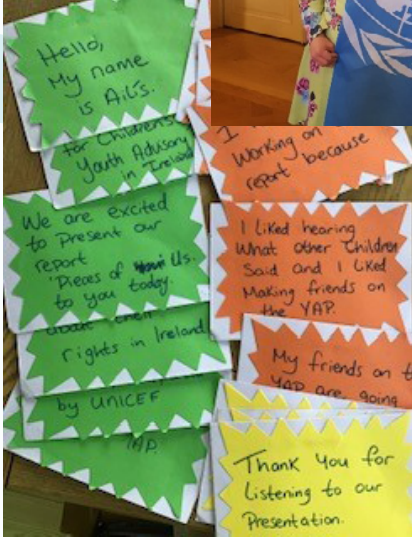 Hello,
My name
is Ailís.
for Children's
Youth Advisory
in Ireland
We are excited
to Present our
report
'Pieces of Us.
to you today.
about their
rights in Ireland
by UNICEF
YAP.
I
Working on
report because
I Liked hearing
What other Children
Said and I Liked
Making friends on
the YAP.
My friends on t
YAP are going
Thank You for
Listening to our
Presentation.